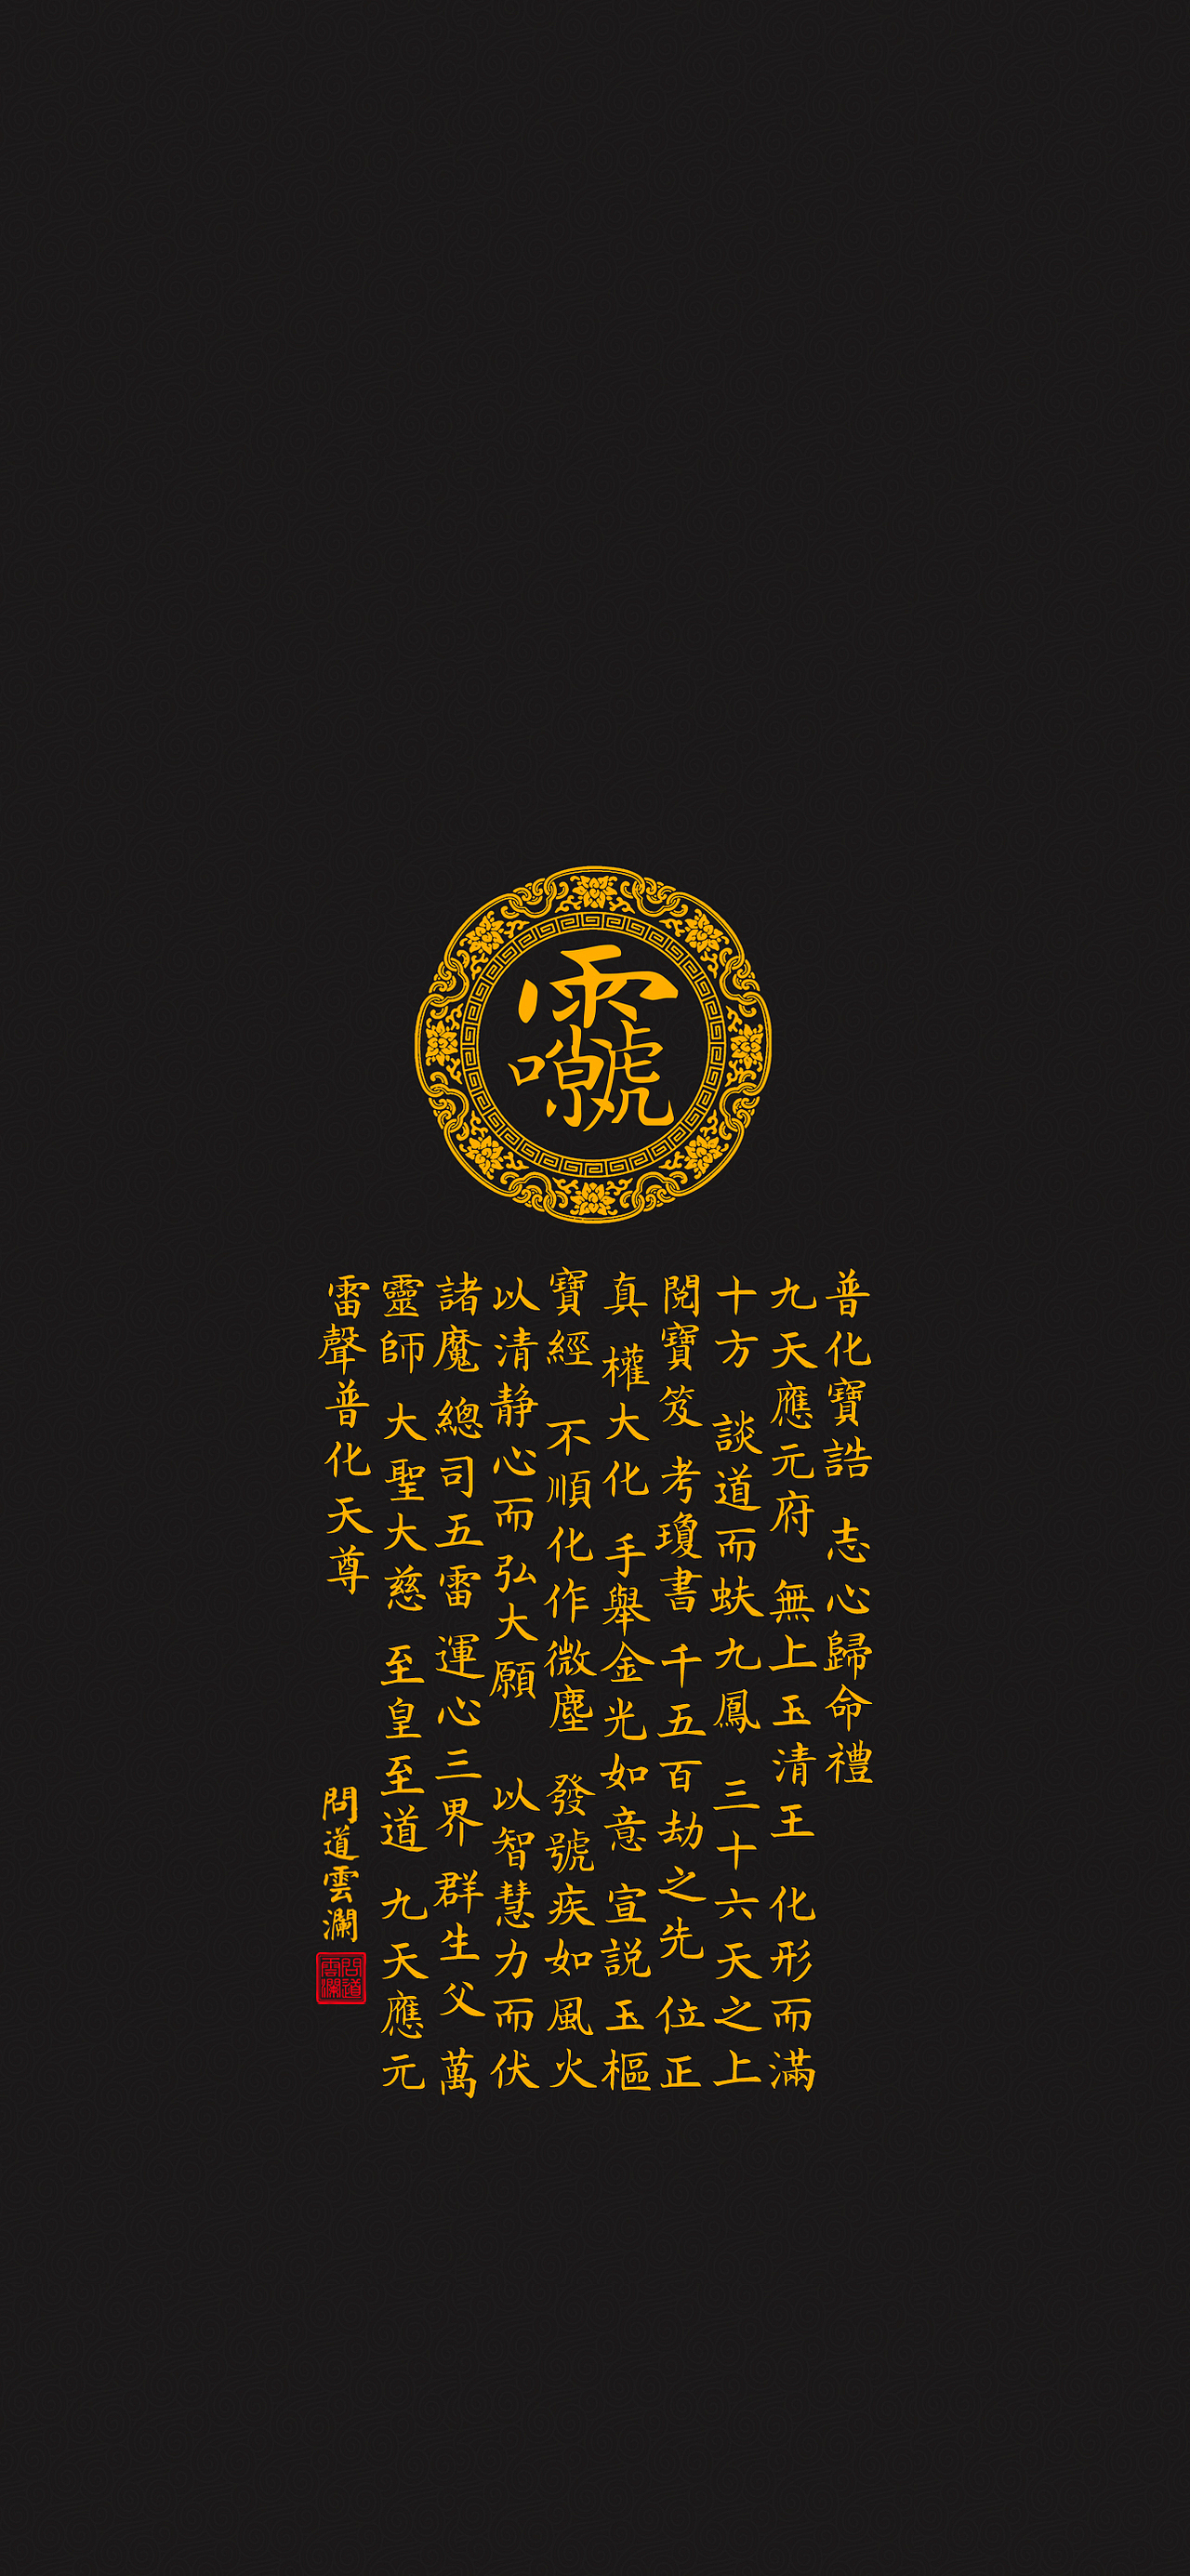 普化寶誥 志心歸命禮
九天應元府 無上玉清王 化形而滿
十方 談道而蚨九鳳 三十六天之上
閱寶笈 考瓊書 千五百劫之先 位正
真 權大化 手舉金光如意 宣説玉樞
寶經 不順化作微塵 發號疾如風火
以清静心而弘大願 以智慧力而伏
諸魔 總司五雷 運心三界 群生父 萬
靈師 大聖大慈 至皇至道 九天應元
雷聲普化天尊
問道雲瀾
問道雲瀾